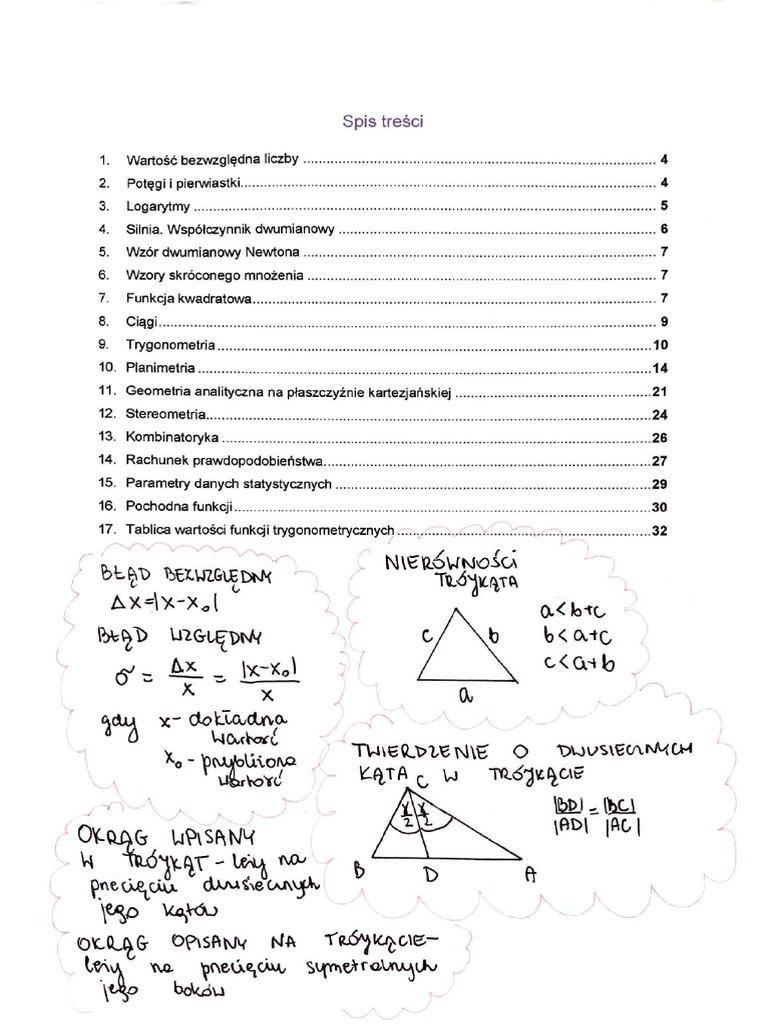 Spis treści
1. Wartość bezwzględna liczby ... 4
2. Potęgi i pierwiastki ... 4
3. Logarytmy ... 5
4. Silnia. Współczynnik dwumianowy ... 6
5. Wzór dwumianowy Newtona ... 7
6. Wzory skróconego mnożenia ... 7
7. Funkcja kwadratowa ... 7
8. Ciągi ... 9
9. Trygonometria ... 10
10. Planimetria ... 14
11. Geometria analityczna na płaszczyźnie kartezjańskiej ... 21
12. Stereometria ... 24
13. Kombinatoryka ... 26
14. Rachunek prawdopodobieństwa ... 27
15. Parametry danych statystycznych ... 29
16. Pochodna funkcji ... 30
17. Tablica wartości funkcji trygonometrycznych ... 32
BŁĄD BEZWZGLĘDNY
Δx=|x-x₀|
BŁĄD WZGLĘDNY
σ = Δx/x = |x-x₀|/x
gdy x- dokładna
wartość
x₀ - przybliżona
wartość
NIERÓWNOŚCI
TRÓJKĄTA
c b
a
a<b+c
b<a+c
c<a+b
TWIERDZENIE O DWUSIECZNYCH
KĄTA W TRÓJKĄCIE
C
γ/2 γ/2
B D A
|BD|/|AD| = |BC|/|AC|
OKRĄG WPISANY
W TRÓJKĄT - leży na
przecięciu dwusiecznych
jego kątów
OKRĄG OPISANY NA TRÓJKĄCIE-
leży na przecięciu symetralnych
jego boków